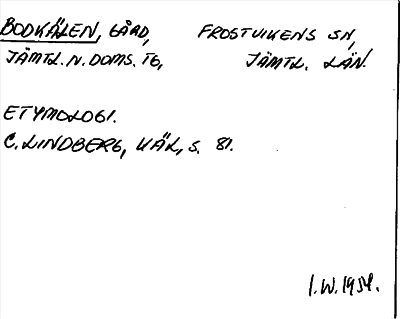 BODKÄLEN, GÅRD, FROSTVIKENS SN,
JÄMTL. N. DOMS. TG, JÄMTL. LÄN.
ETYMOLOGI.
C. LINDBERG, KÄL, S. 81.
I.W. 1954.